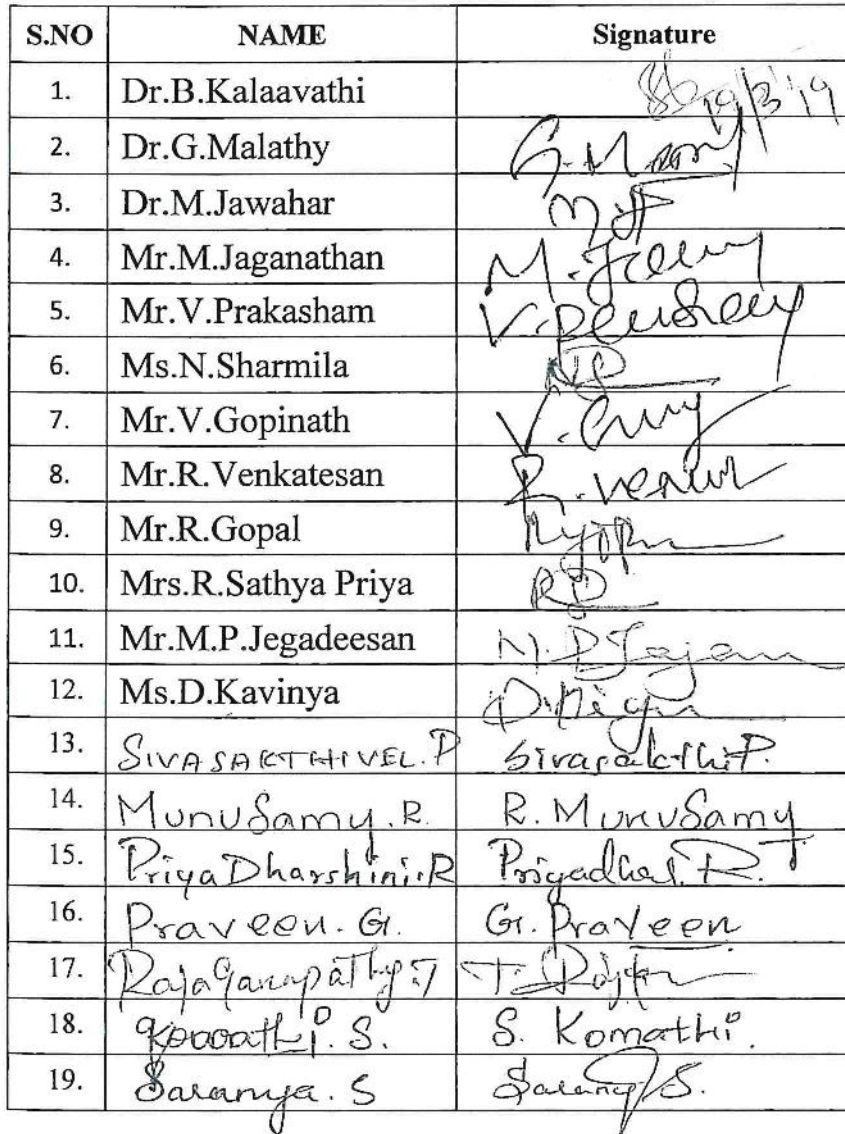 S.NO NAME Signature
1. Dr.B.Kalaavathi 19/3/19
2. Dr.G.Malathy
3. Dr.M.Jawahar
4. Mr.M.Jaganathan
5. Mr.V.Prakasham
6. Ms.N.Sharmila
7. Mr.V.Gopinath
8. Mr.R.Venkatesan
9. Mr.R.Gopal
10. Mrs.R.Sathya Priya
11. Mr.M.P.Jegadeesan
12. Ms.D.Kavinya
13. SIVASAKTHIVEL.P Sivasakthi P.
14. Munusamy.R. R. Munusamy
15. PriyaDharshini.R Priyadhar.R.
16. Praveen. G. G. Praveen
17. Rajaganapathy.T
18. Komathi. S. S. Komathi.
19. Saranya. S Saranya S.